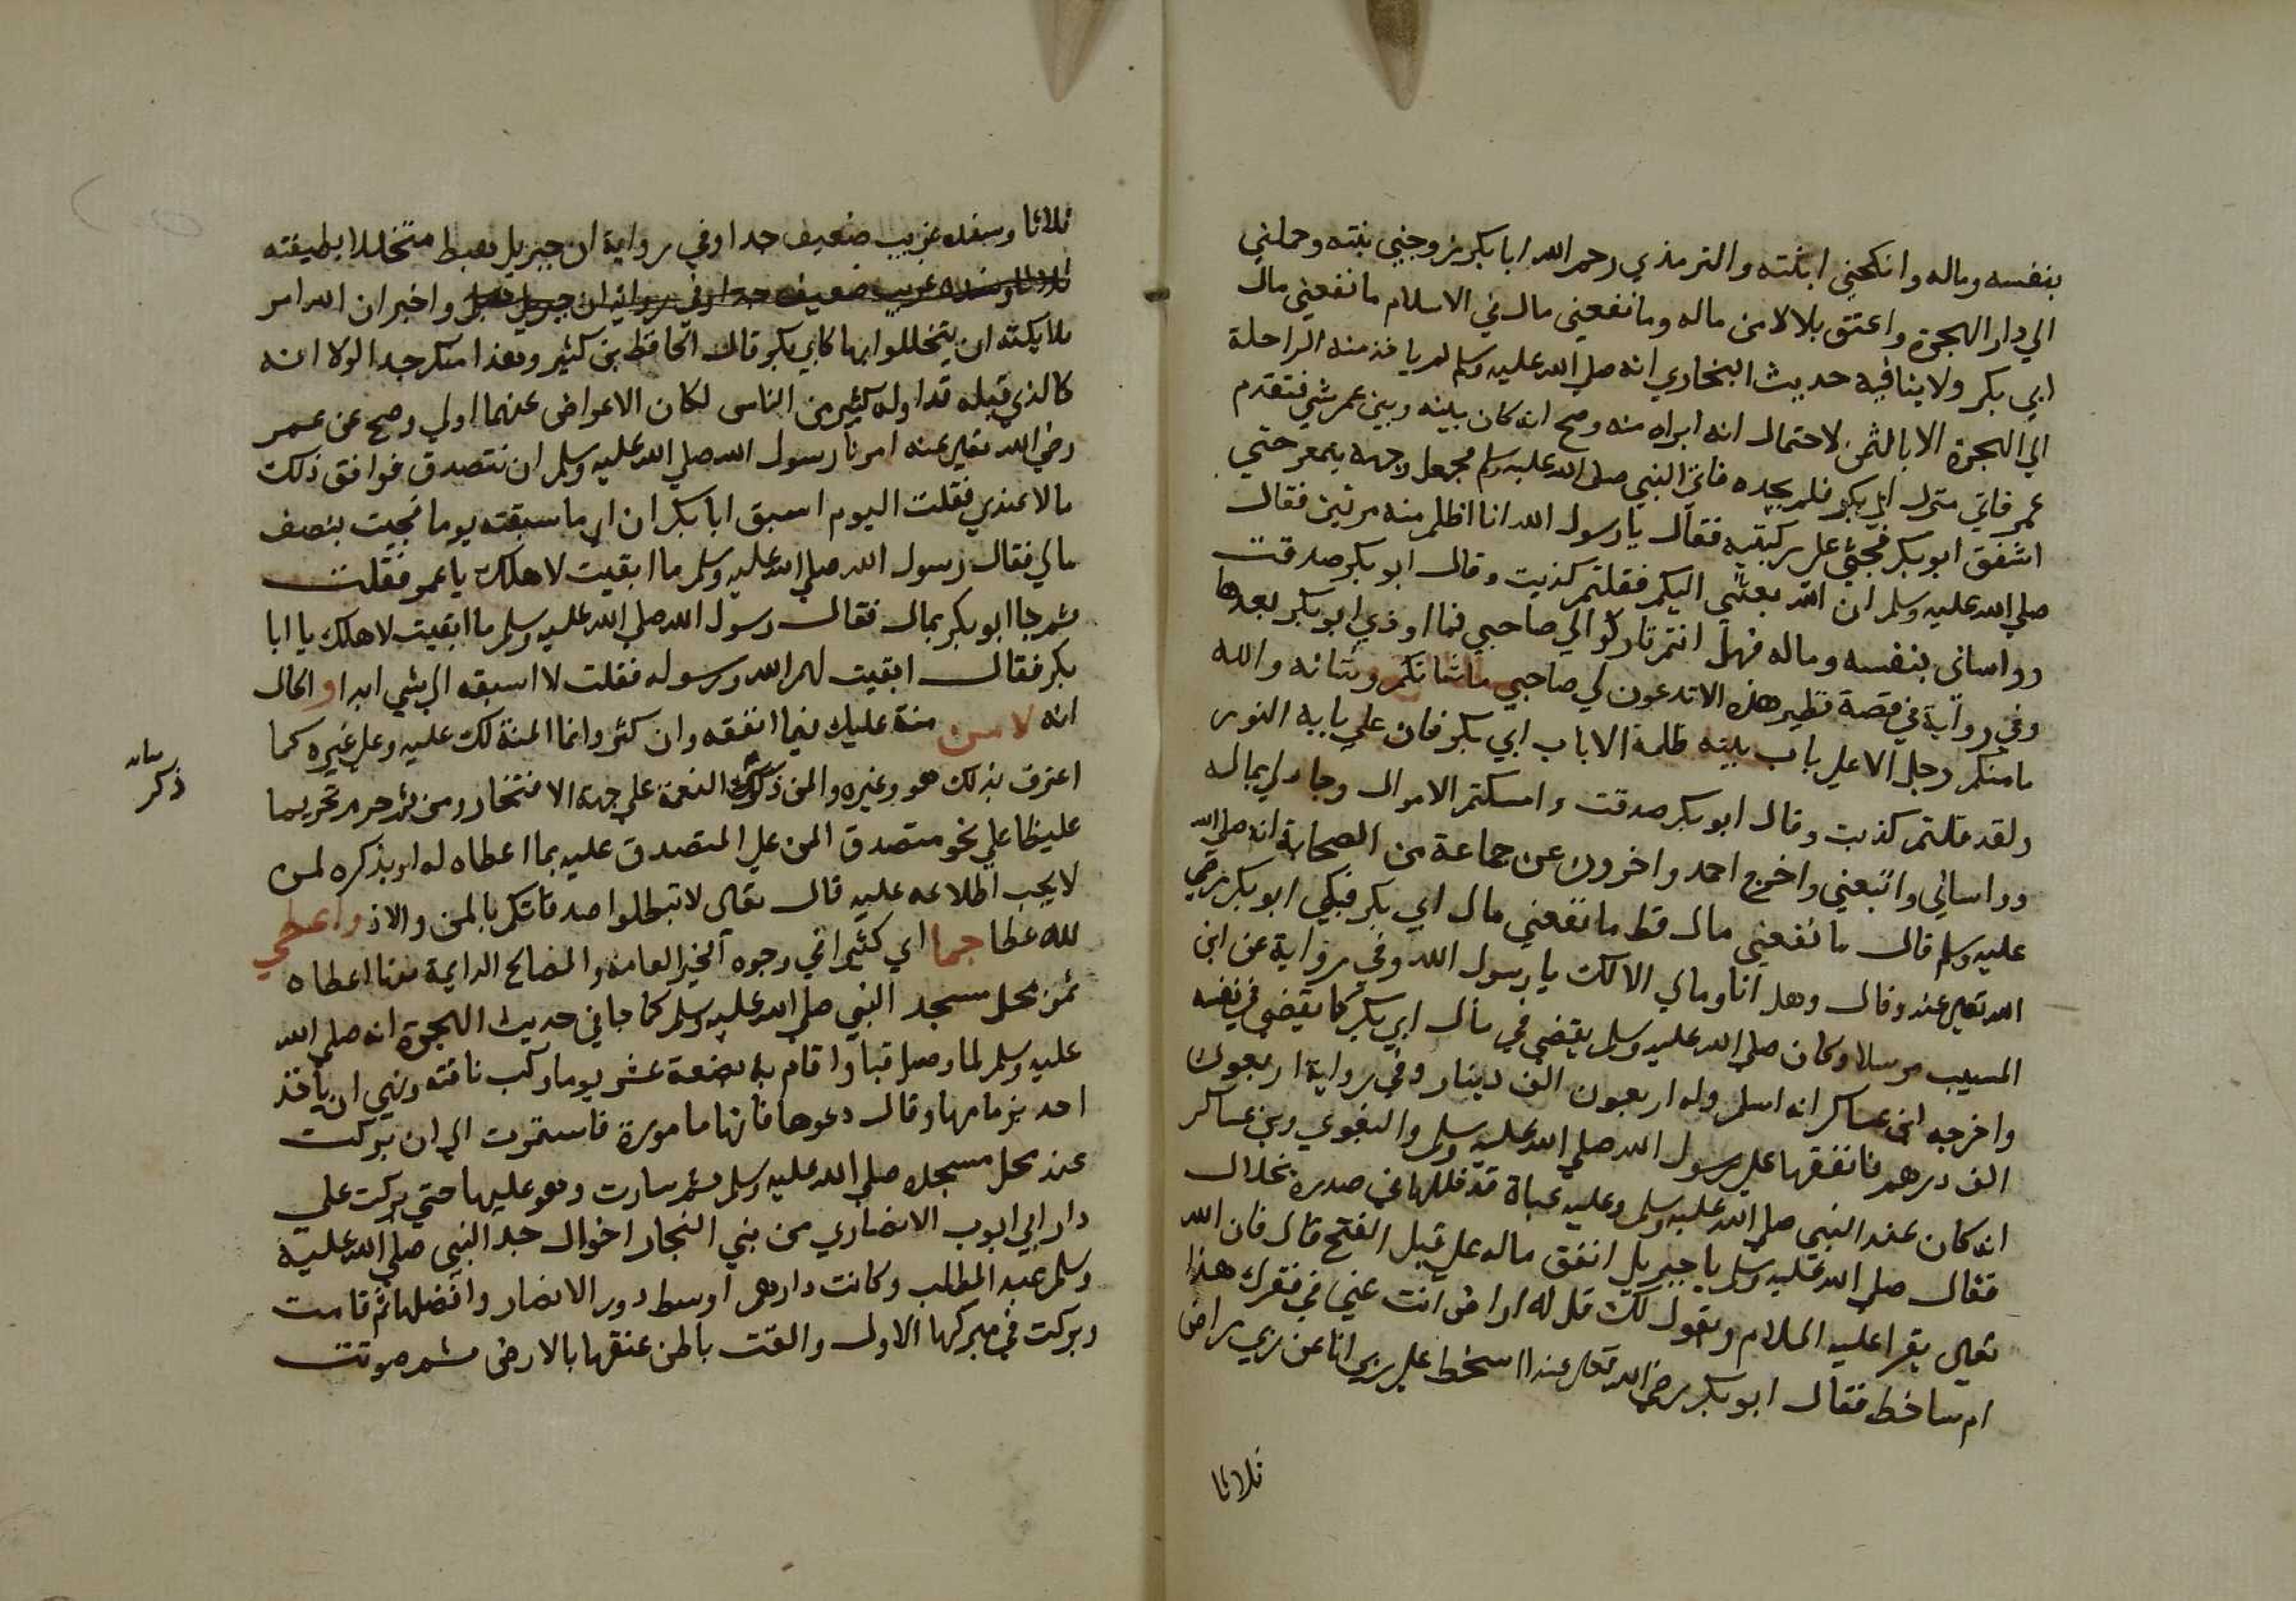 بنفسه وماله وانكحني ابنته والترمذي رحم الله ابا بكر زوجني بنته وحملني
الي دار الهجرة واعتق بلالا من ماله وما نفعني مال في الاسلام ما نفعني مال
ابي بكر ولا ينافيه حديث البخاري انه صلي الله عليه وسلم لم ياخذ منه الراحلة
الي الهجرة الا بالثمن لاحتمال انه ابراه منه وصح انه كان بينه وبين عمر شي فتقدم
عمر فاتي منزل ابي بكر فلم يجده فاتي النبي صلي الله عليه وسلم فجعل وجهه يتمعر حتي
اشفق ابو بكر فجثي علي ركبتيه فقال يا رسول الله انا اظلم منه مرتين فقال
صلي الله عليه وسلم ان الله بعثني اليكم فقلتم كذبت وقال ابو بكر صدقت
وواساني بنفسه وماله فهل انتم تاركوا لي صاحبي فما اوذي ابو بكر بعدها
وفي رواية في قصة نظير هذه الا تدعون لي صاحبي ما شانكم وشانه والله
ما منكم رجل الا علي باب بيته ظلمة الا باب ابي بكر فان علي بابه النور
ولقد قلتم كذبت وقال ابو بكر صدقت وامسكتم الاموال وجاد لي بماله
وواساني واتبعني واخرج احمد واخرون عن جماعة من الصحابة انه صلي الله
عليه وسلم قال ما نفعني مال قط ما نفعني مال ابي بكر فبكي ابو بكر رضي
الله تعالي عنه وقال وهل انا ومالي الا لك يا رسول الله وفي رواية عن ابن
المسيب مرسلا وكان صلي الله عليه وسلم يقضي في مال ابي بكر كما يقضي في نفسه
واخرجه ابن عساكر انه اسلم وله اربعون الف دينار وفي رواية اربعون
الف درهم فانفقها علي رسول الله صلي الله عليه وسلم والبغوي وبن عساكر
انه كان عند النبي صلي الله عليه وسلم وعليه عباة قد خللها في صدره بخلال
فقال صلي الله عليه وسلم يا جبريل انفق ماله علي قبل الفتح قال فان الله
تعالي يقرا عليه السلام ويقول لك قل له اراض انت عني في فقرك هذا
ام ساخط فقال ابو بكر رضي الله تعالي عنه ااسخط علي ربي انا عن ربي راض
ثلاثا
ثلاثا وسنده غريب ضعيف جدا وفي رواية ان جبريل هبط متخللا بطنفسة
ثلاثا وسنده غريب ضعيف جدا وفي رواية ان جبريل واخبر ان الله امر
ملايكته ان يتخللوا بها كابي بكر قال الحافظ بن كثير وهذا منكر جدا لولا انه
كالذي قبله تداوله كثير من الناس لكان الاعراض عنهما اولي وصح عن عمر
رضي الله تعالي عنه امرنا رسول الله صلي الله عليه وسلم ان نتصدق فوافق ذلك
مالا عندي فقلت اليوم اسبق ابا بكر ان ما سبقته يوما فجيت بنصف
مالي فقال رسول الله صلي الله عليه وسلم ما ابقيت لاهلك يا عمر فقلت
ثم جا ابو بكر بمال فقال رسول الله صلي الله عليه وسلم ما ابقيت لاهلك يا ابا
بكر فقال ابقيت لهم الله ورسوله فقلت لا اسبقه الي شي ابدا و الحال
انه لا من منة عليك فيما انفقه وان كثر وانما المنة لك عليه وعلي غيره كما
اعترف بذلك هو وغيره والمن ذكرك النعمة علي جهة الافتخار ومن ثم حرم تحريما
غليظا علي نحو متصدق المن علي المتصدق عليه بما اعطاه له او بذكره لمن
لا يجب اطلاعه عليه قال تعالي لا تبطلوا صدقاتكم بالمن والاذ واعطي
لله عطا جما اي كثيرا في وجوه الخير العامة والمصالح الدايمة منها اعطاه
ثمن محل مسجد النبي صلي الله عليه وسلم كما جا في حديث الهجرة انه صلي الله
عليه وسلم لما وصل قبا واقام به بضعة عشر يوما ركب ناقته ونهي ان ياخذ
احد بزمامها وقال دعوها فانها مامورة فاستمرت الي ان بركت
عند محل مسجده صلي الله عليه وسلم ثم سارت وهو عليها حتي بركت علي
دار ابي ايوب الانصاري من بني النجار اخوال جد النبي صلي الله عليه
وسلم عبد المطلب وكانت دارهم اوسط دور الانصار وافضلها ثم قامت
وبركت في مبركها الاول والقت باطن عنقها بالارض ثم صوتت
ذكر